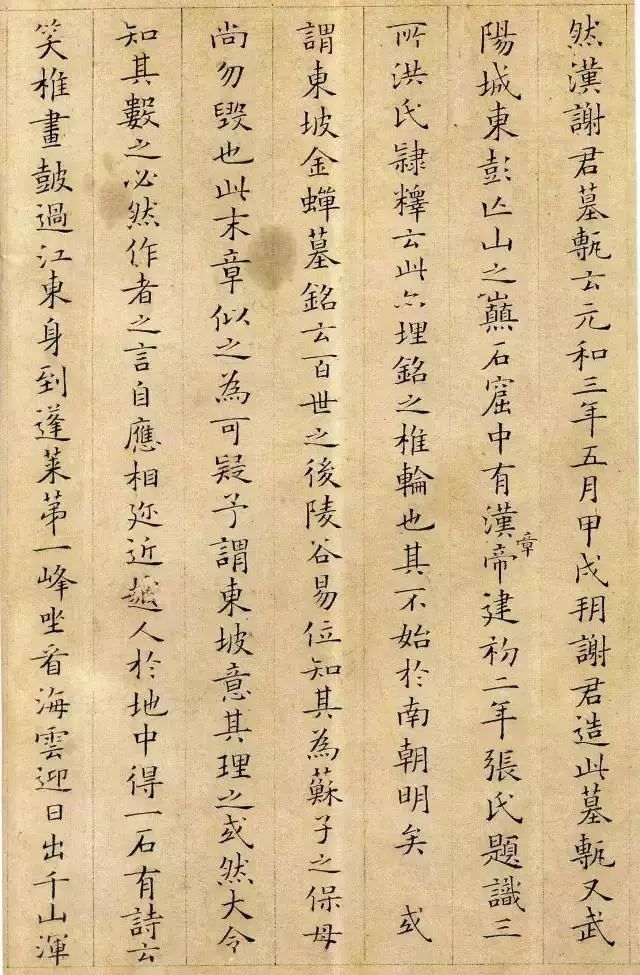 然漢謝君墓甎云元和三年五月甲戌朔謝君造此墓甎又武
陽城東彭亡山之巔石窟中有漢章帝建初二年張氏題識三
所洪氏隸釋云此亦埋銘之椎輪也其不始於南朝明矣 或
謂東坡金蟬墓銘云百世之後陵谷易位知其為蘇子之保母
尚勿毀也此末章似之為可疑予謂東坡意其理之或然大令
知其數之必然作者之言自應相迩近越人於地中得一石有詩云
笑椎畫鼓過江東身到蓬萊第一峰坐看海雲迎日出千山渾